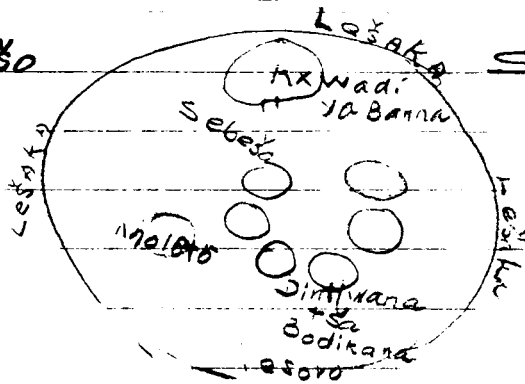 LešAKA
Kxwadi
ya Banna
Sebešo
LešAKA
LešAka
Dintlwana
tša
Bodikana